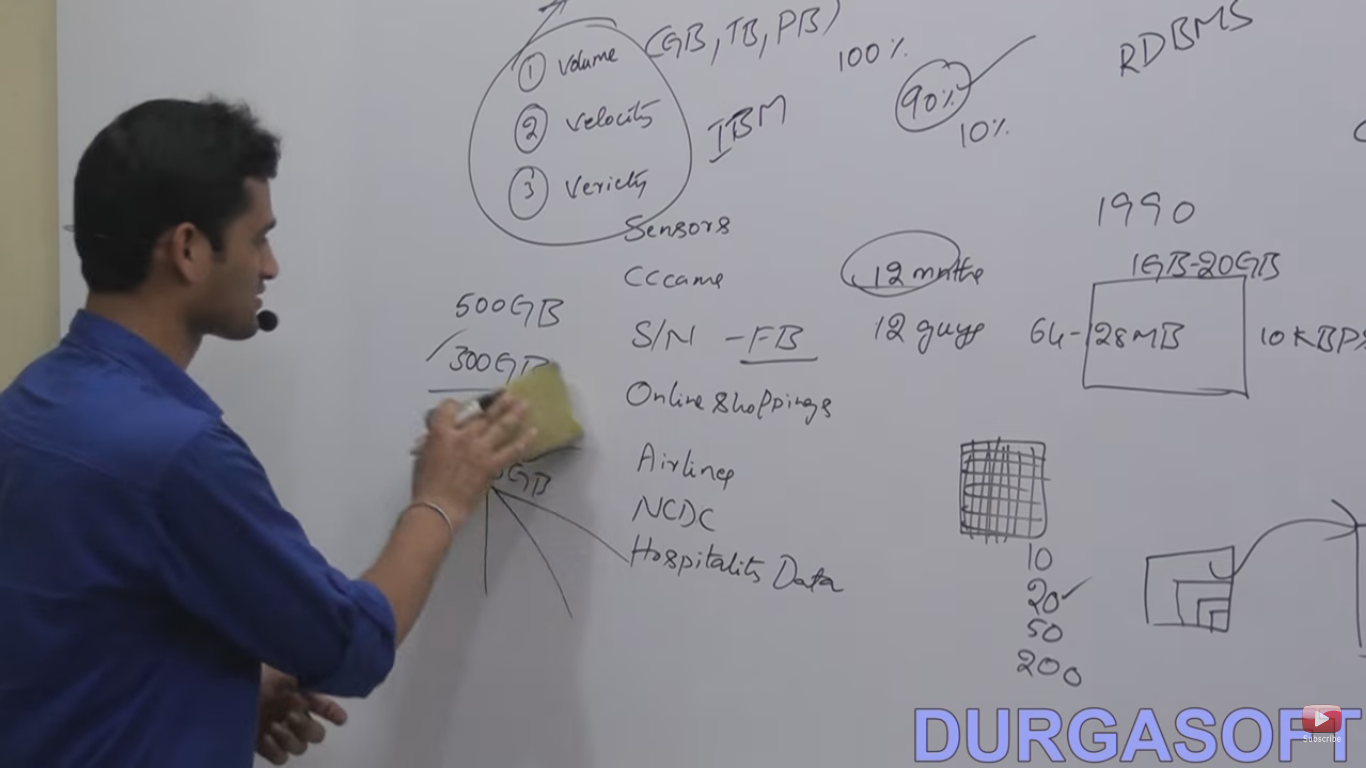 ① Volume (GB, TB, PB)
② Velocity
③ Veriety
IBM
100%
90%
10%
RDBMS
Sensors
CCcame
S/N - FB
Online Shoppings
Airlines
NCDC
Hospitality Data
500GB
300GB
GB
12 months
12 guys
1990
1GB-20GB
64-128MB
10KBPS
10
20✓
50
200
DURGASOFT
Subscribe